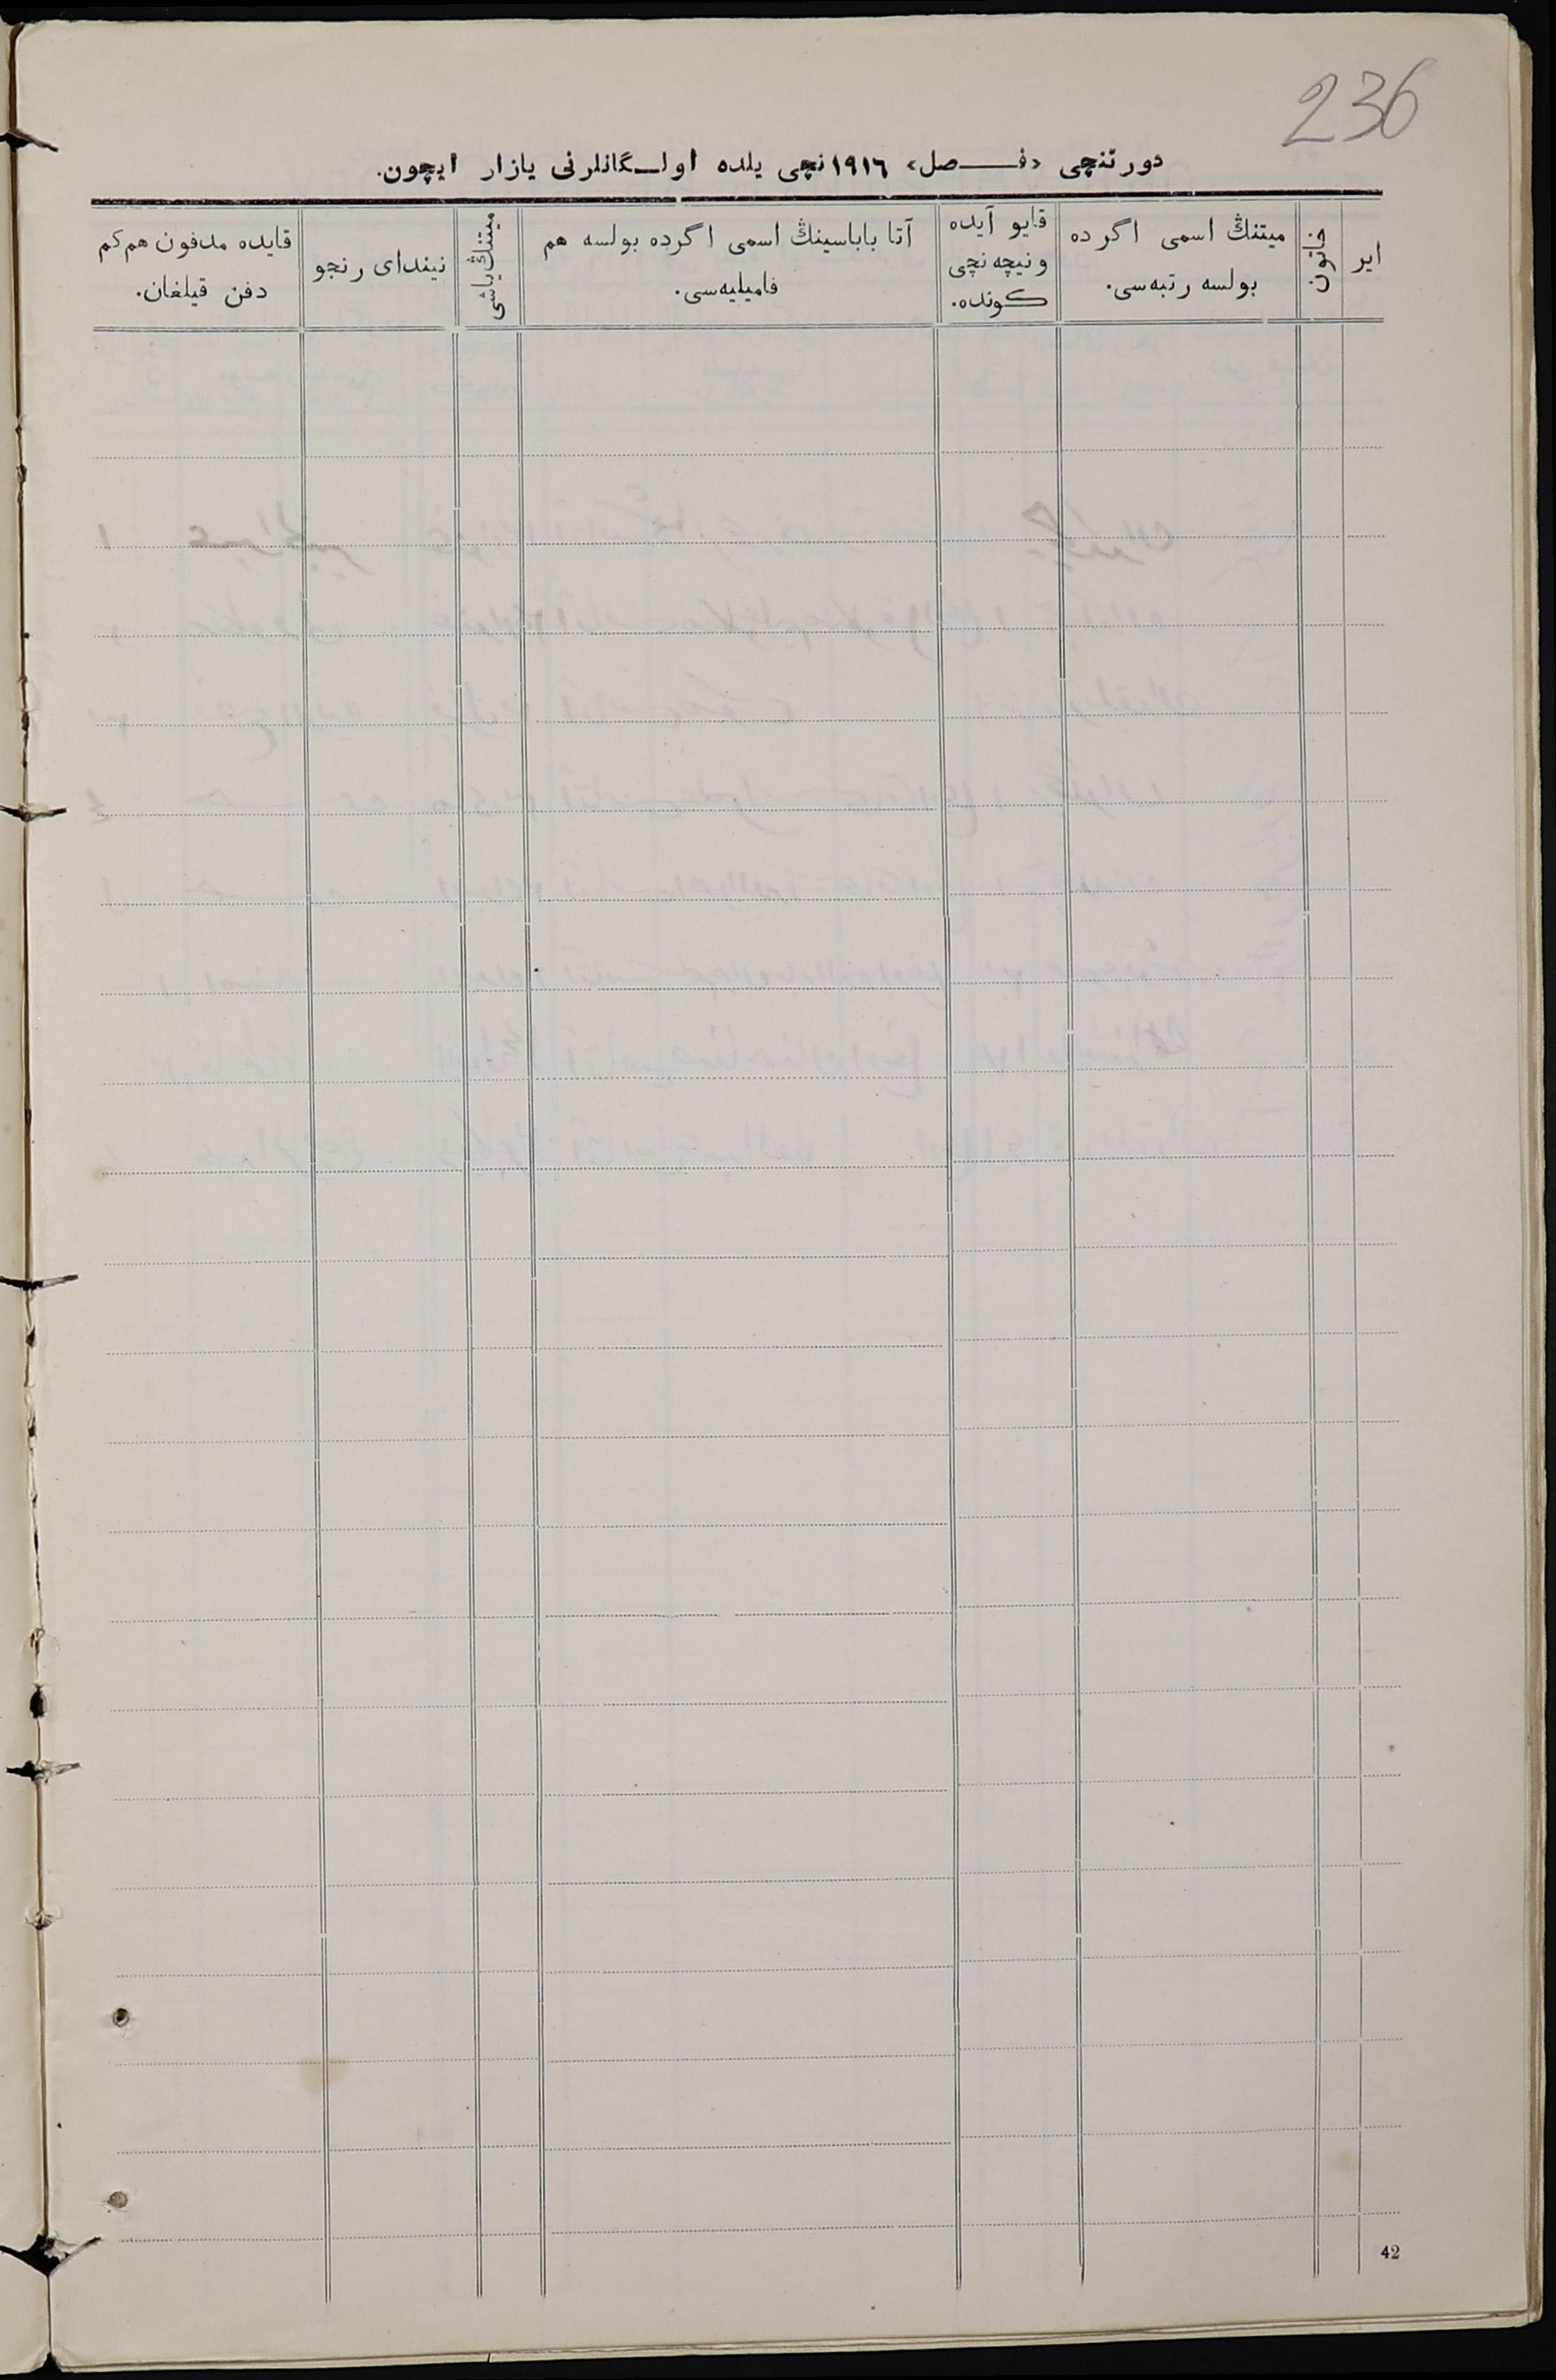 236
دورتنچی «فـــصل» ١٩١٦نچی یلده اولـگانلرنی یازار ایچون.
ایر
خاتون
میتنڭ اسمی اگر ده
بولسه رتبه‌سی.
قایو آیده
ونیچه‌نچی
كونده.
آتا باباسینڭ اسمی اگرده بولسه هم
فامیلیه‌سی.
میتنڭ یاشی
نیندای رنجو
قایده مدفون هم‌کم
دفن قیلغان.
42